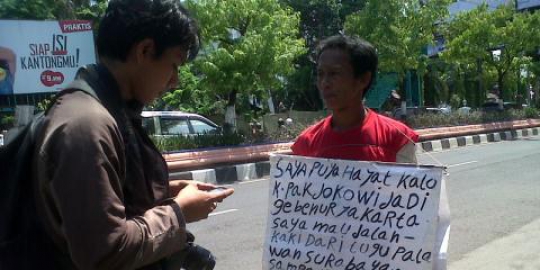 PRAKTIS
SIAP ISI
KANTONGMU!
SAYA PUYA HAYAT KALO
K.PAK JOKOWI JADI
gebenur JAKARTA
SAYA MAU JALAN-
KAKI DARI TUGU PALA
WAN SURABAYA
SAMPA